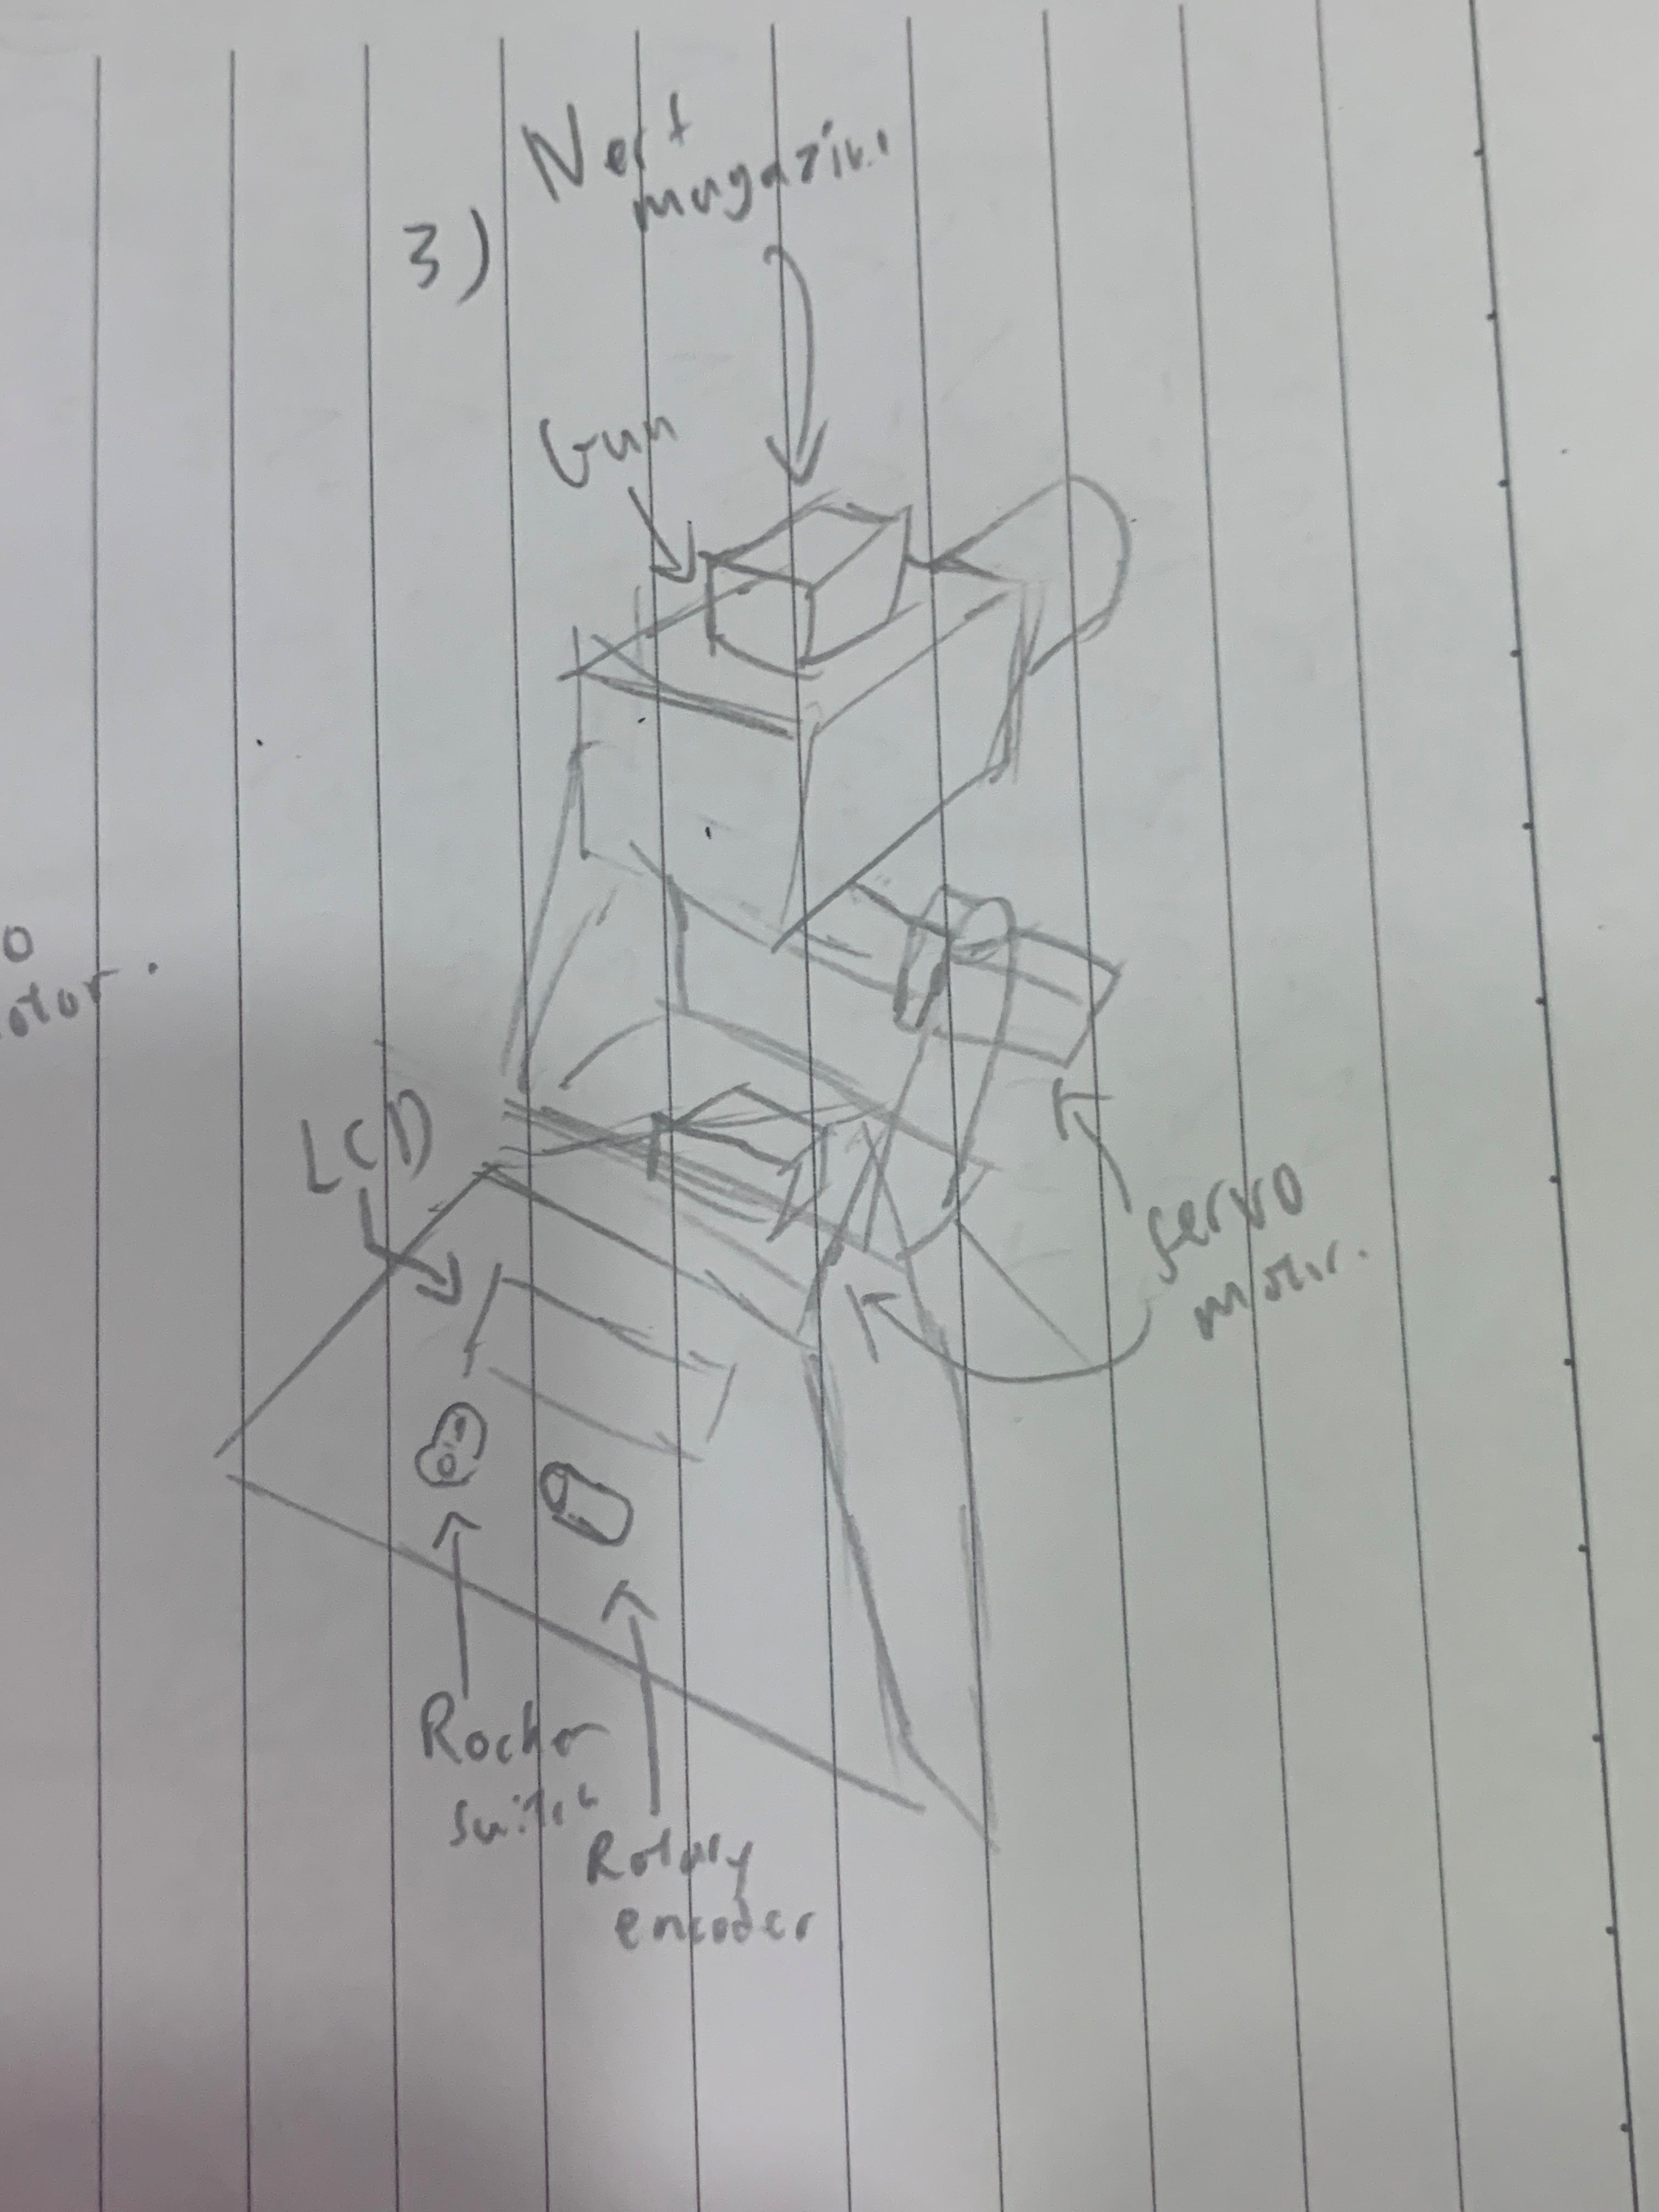 3)
Nerf
magazine
Gun
LCD
servo
motor.
Rocker
switch
Rotary
encoder